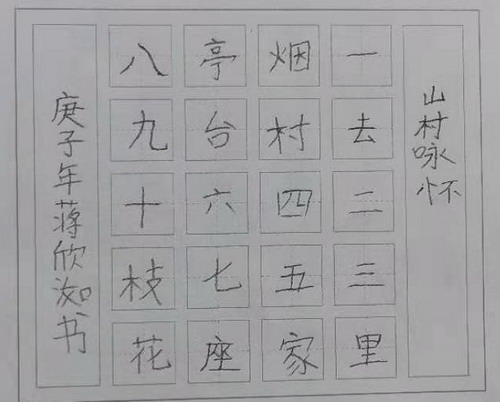 山村咏怀
一去二三里
烟村四五家
亭台六七座
八九十枝花
庚子年蒋欣汝书